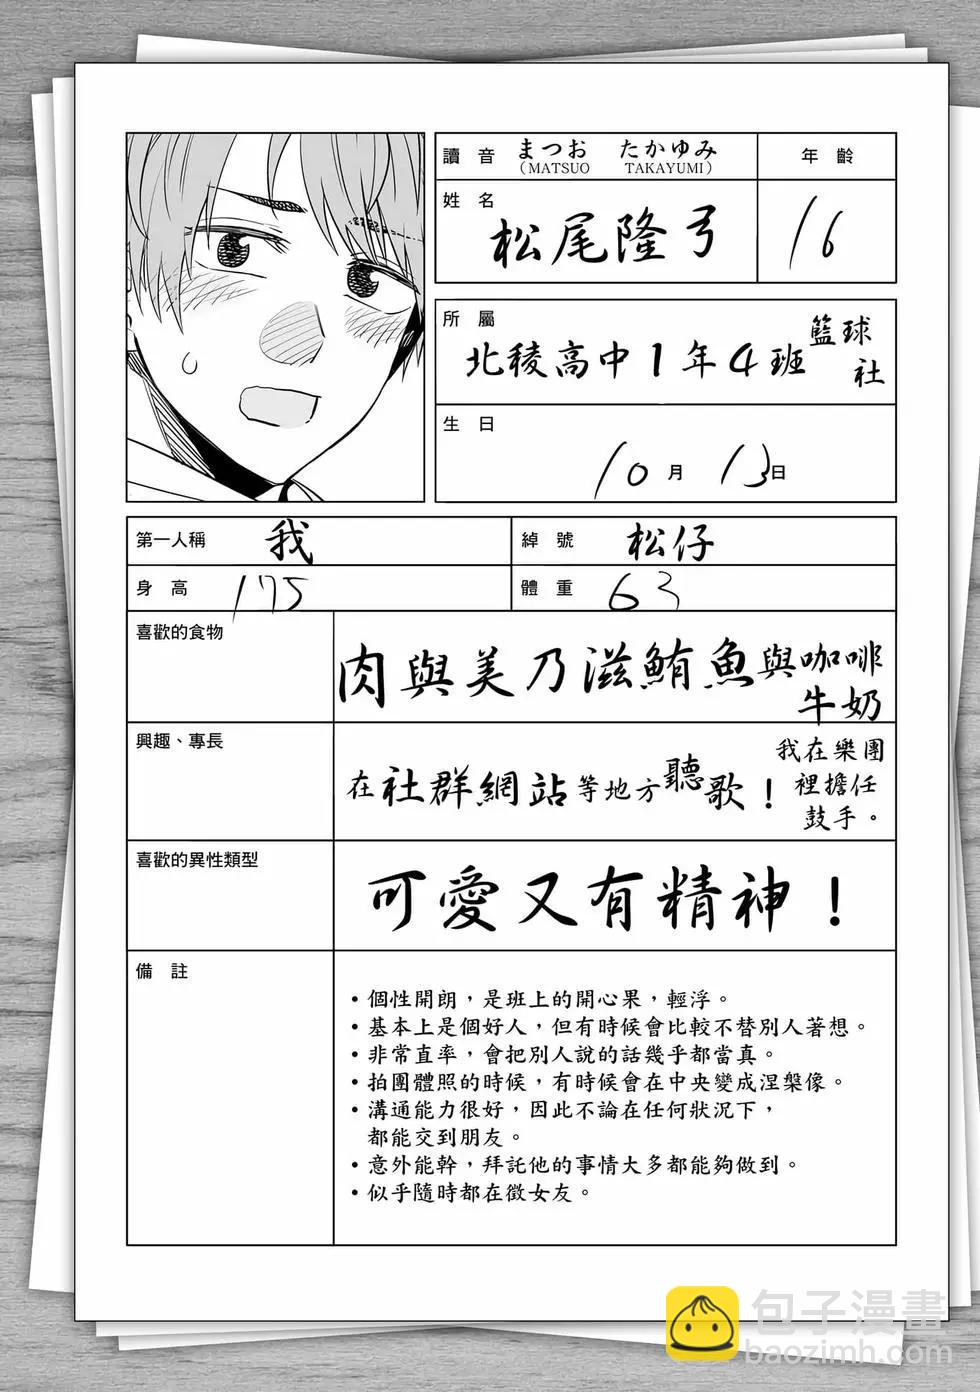 讀音 まつお たかゆみ
(MATSUO TAKAYUMI)
年齡
姓名
松尾隆弓
16
所屬
北稜高中1年4班籃球社
生日
10月13日
第一人稱 我
綽號 松仔
身高 175
體重 63
喜歡的食物
肉與美乃滋鮪魚與咖啡牛奶
興趣、專長
在社群網站等地方聽歌！
我在樂團
裡擔任
鼓手。
喜歡的異性類型
可愛又有精神！
備註
•個性開朗，是班上的開心果，輕浮。
•基本上是個好人，但有時候會比較不替別人著想。
•非常直率，會把別人說的話幾乎都當真。
•拍團體照的時候，有時候會在中央變成涅槃像。
•溝通能力很好，因此不論在任何狀況下，
都能交到朋友。
•意外能幹，拜託他的事情大多都能夠做到。
•似乎隨時都在徵女友。
包子漫畫
baozimh.com